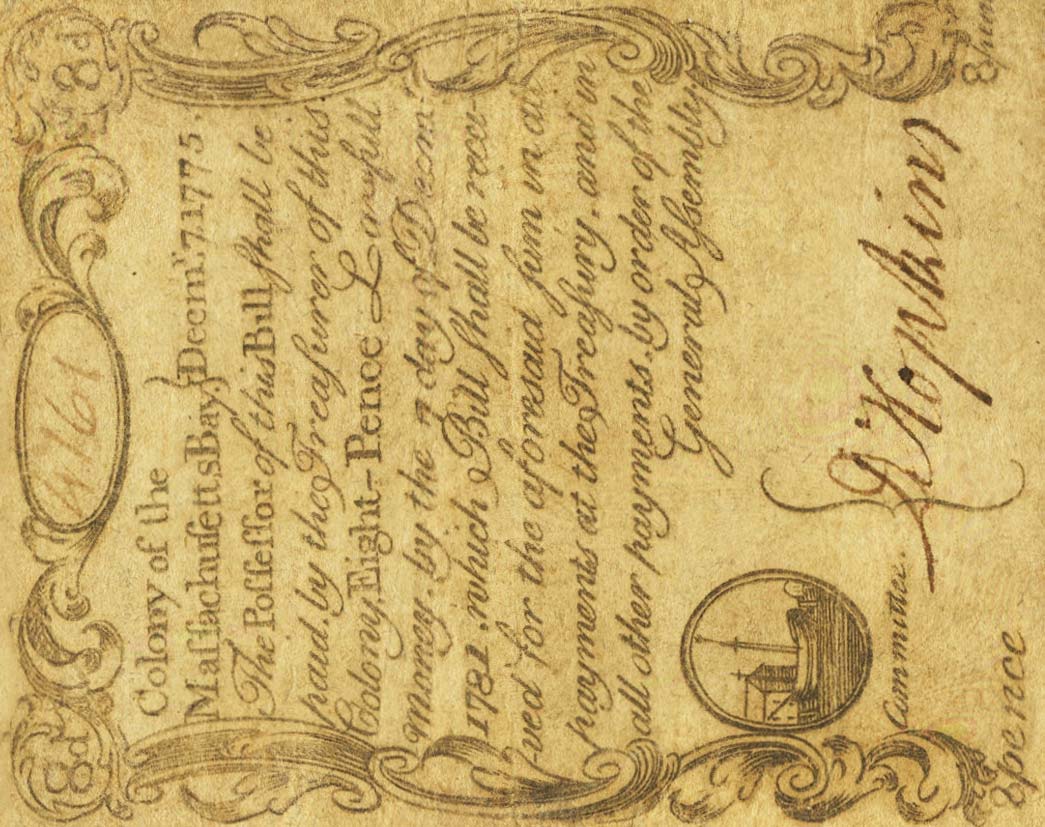 8d 8d
4161
Colony of the
Maſſachuſetts Bay } Decm.r 7. 1775.
The Poſſeſſor of this Bill ſhall be
paid, by the Treaſurer of this
Colony, Eight-Pence Lawfull
money, by the 7 day of Decm.r
1781. which Bill ſhall be recei-
ved for the aforesaid ſum in all
payments at the Treaſury, and in
all other payments, by order of the
General Aſsembly.
Committee.
Hopkins
8 pence 8